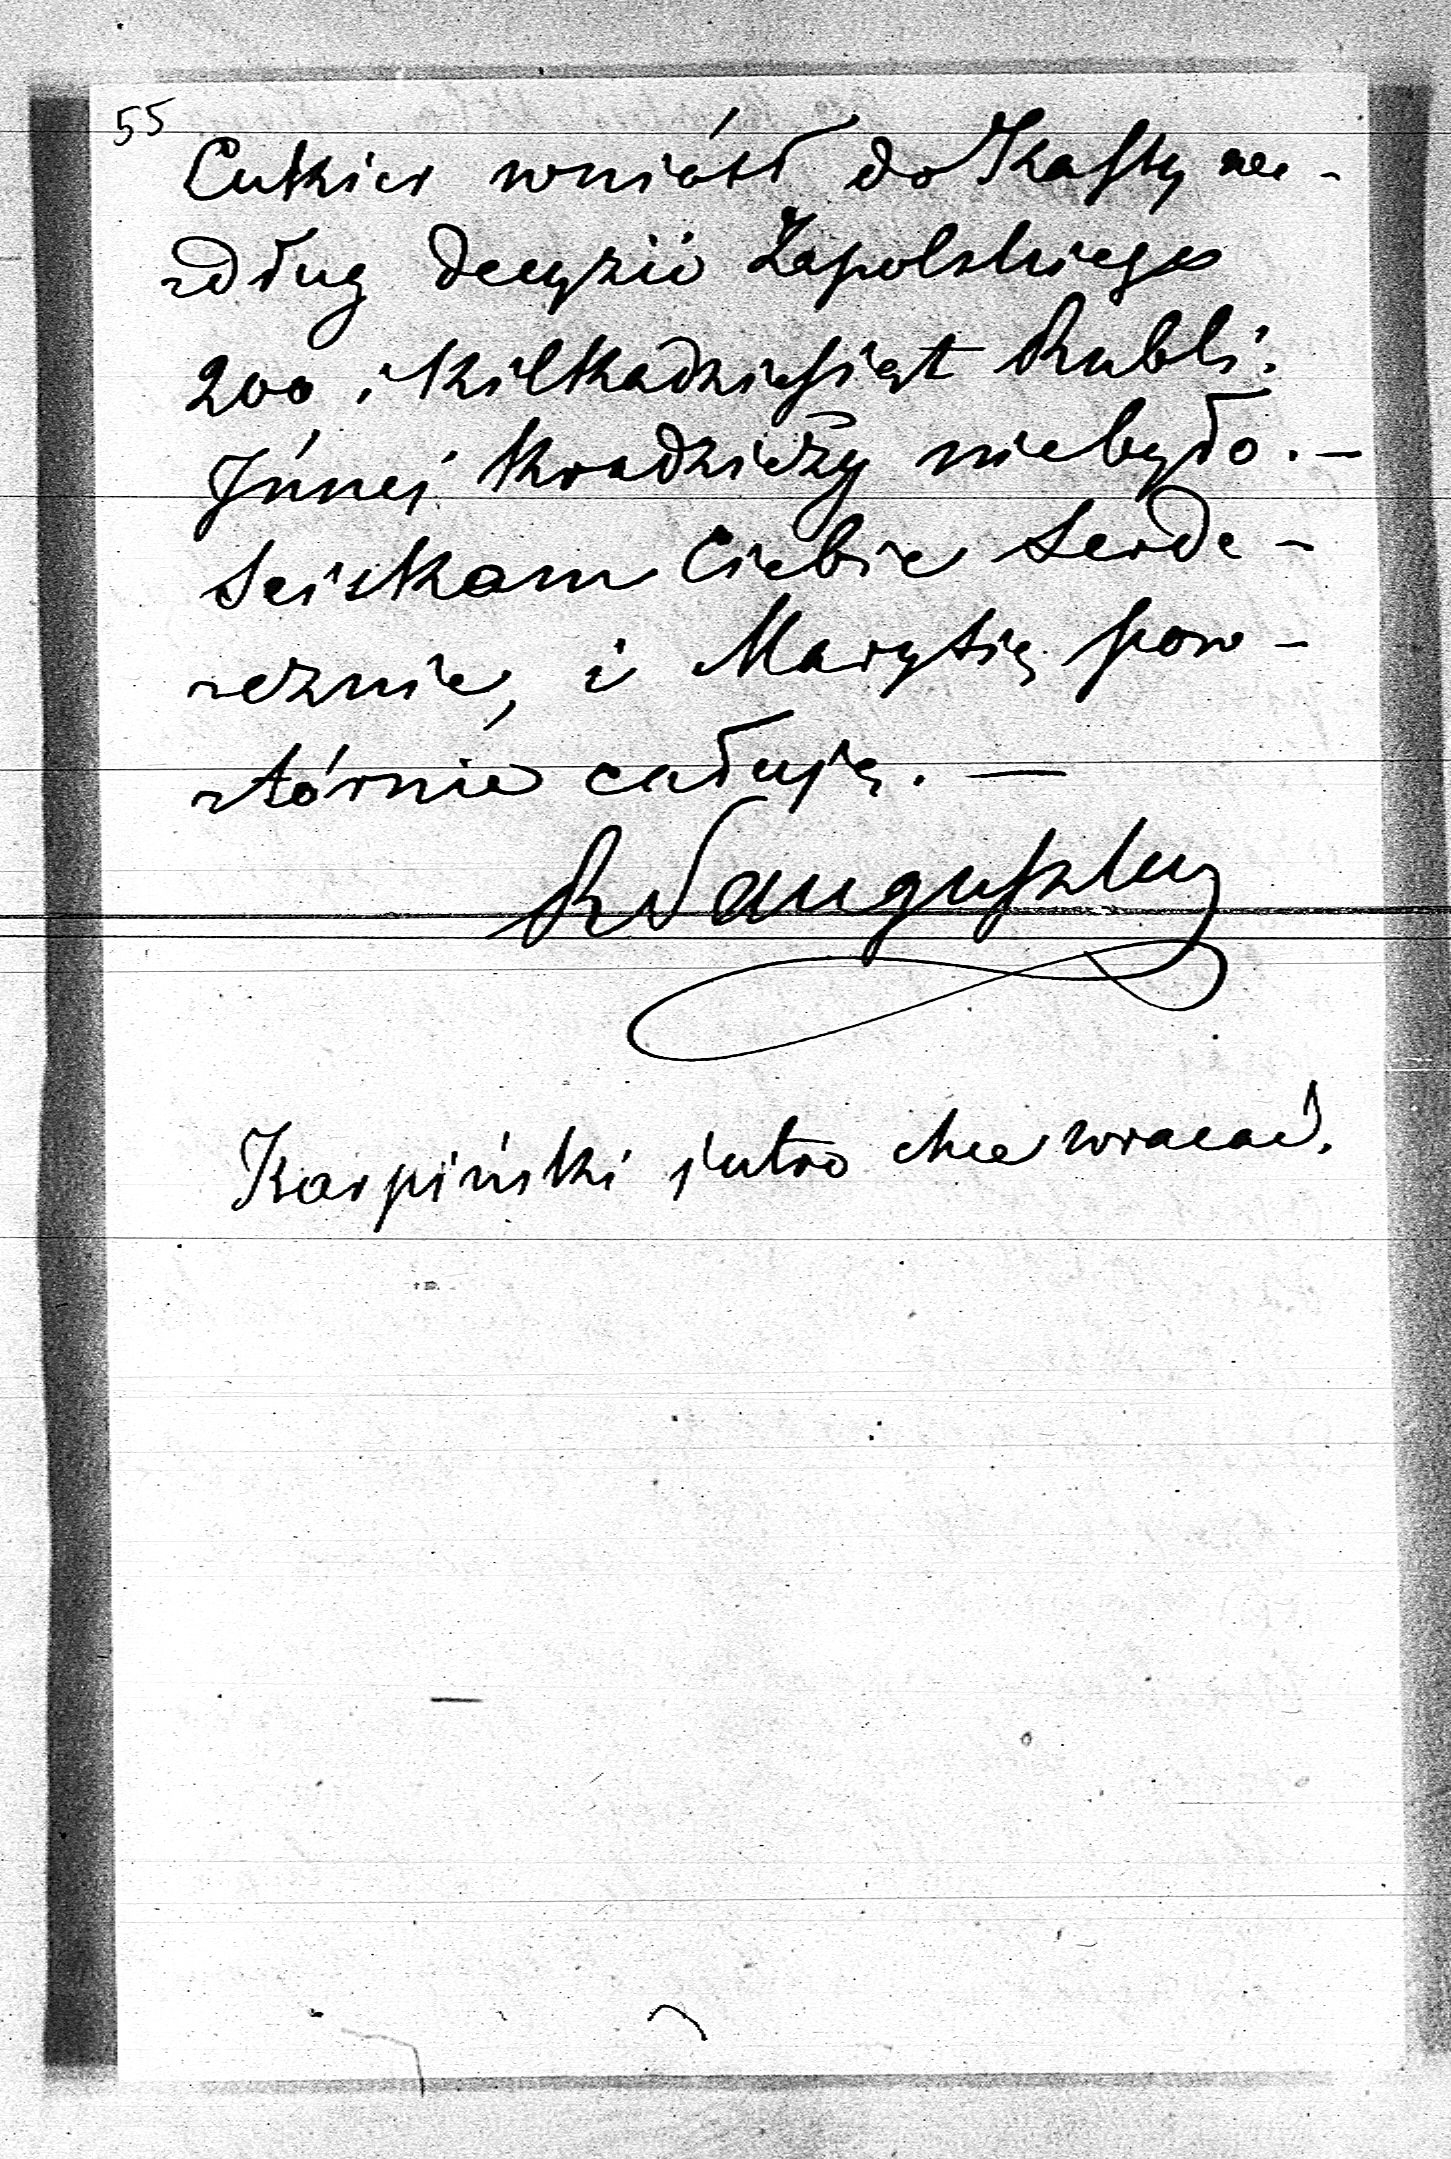 55
Cukier wniósł do Kassy we-
dług decyzii Zapolskiego
200 i kilkadziesiąt Rubli.
Innéj kradzieży niebyło. —
Sciskam Ciebie Serde-
cznie, i Marysię pow-
tórnie całuję. —
R Sanguszko
Karpiński jutro chce wracać.